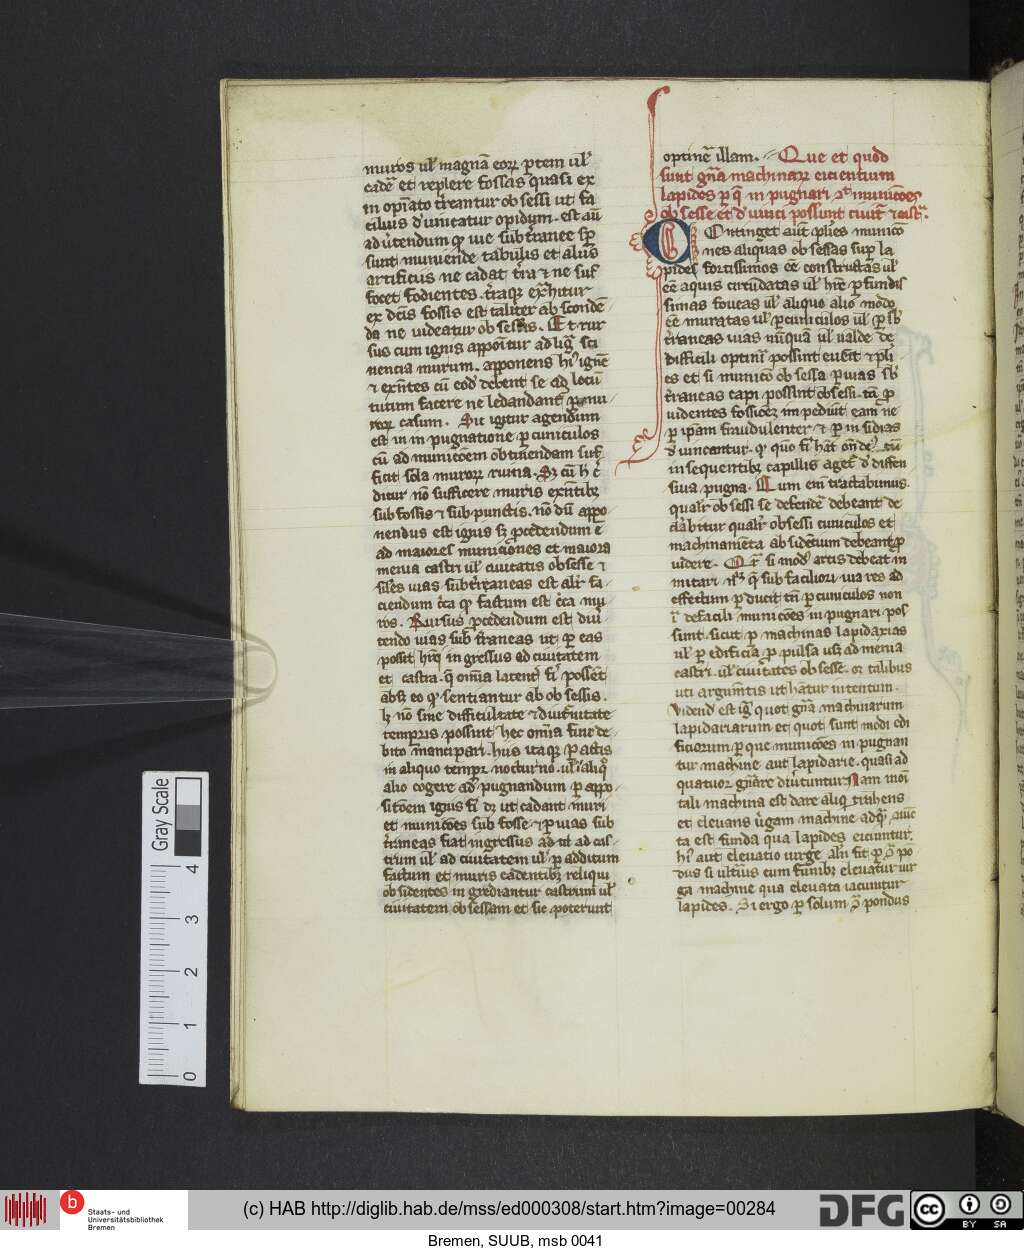 muros ul' magnā eorꝝ ptem ul'
cadē et replere fossas quasi ex
in opīato treantur obsessi ut fa
cilius d'uincatur opidum. est aū
ad u'tendum qꝫ uie subtranee sp
sunt muniende tabulis et aliis
artificiis ne cadat tr̄a ⁊ ne suf
focet fodientes. tr̄aqꝫ
ex dc̄is fossis est tali'ter ab sconde
da ne uideatur obsessis. Et rur
sus cum ignis apponītur ad lig̅ sti
nencia murum. apponens hi' ignē
⁊ exn̄tes cū eod' debent se ad locū
tutum facere ne ledandant' p mu
roꝝ casum. Sic igitur agendum
est in in pugnatione p cuniculos
cū ad municōem obtinendam suf
ficit sola muroꝝ ruina. Sꝫ cū h c̄
ditur nō sufficere muris exn̄tibꝫ
sub fossis ⁊ sub punctis. nō dū appo
nendus est ignis sꝫ pcedendum ē
ad maiores municiones et maiora
menia castri ul' ciuitatis obsesse ⁊
sil'es uias subtr̄raneas est alr' fa
ciendum cc̄a qꝫ factum est cc̄a mu
ros. Rursus pcedendum est diu'
tendo uias sub traneas ut p eas
possit hr̄i in gressus ad ciuitatem
et castra. q̄ om̄ia latent' si' possēt
absꝫ eo qꝫ sentiantur ab obsessis.
lꝫ nō sine difficultate ⁊ diut'nitate
temp̄ris possint hec om̄ia fine de
bito mancipari. hiis itaqꝫ pactis
in aliquo temp̄r nocturno. ul' ī aliqº
alio cogere ad pugnandum p appo
sitōem ignis si' dꝫ ut cadant muri
et municōes sub fosse ⁊ p uias sub
tr̄aneas fiat ingressus ad ul' ad cas
trum ul' ad ciuitatem ul' p additum
factum et muris cadentibꝫ reliqui
obsidentes in grediantur castrum ul'
ciuitatem obsessam et sic poterunt
optinē illam. Que et quod
sunt gn̄a machinaꝝ eicientium
lapides p q̄ in pugnari ⁊ municōes
obsesse et d'uinci possunt ciuit' ⁊ castr̄.
Contingēt aūt plīes municō
nes aliquas obsessas sup la
pides fortissimos ēē constructas ul'
ēē aquis circūdatas ul' hr̄e pfundis
simas foueas ul' aliquo alio modo
ēē muratas ul' p cuniculos ul' p sb'
tr̄aneas uias nūquā ul' ualde de
difficili optinī possint euēit ⁊ pli
es et si municō obsessa p uias sb'
tr̄aneas capi possint obsessi. tn̄ p
uidentes fossioēꝫ impediūt eam ne
p ipam fraudulenter ⁊ p in sidias
d'uincantur. qꝫ quo si' hāt on̄de' tū
in sequentibꝫ capitulis aget' d' diffen
siua pugna. Cum em̄ tractabimus.
qualr' obsessi se defende' debeant de
clarabitur qualr' obsessi cuniculos et
machinamēta ab sidētium debeant p
uidere. Q̄r si modꝰ artis debeat in
mitari nꝫ q̄ sub faciliori uia res ad
effectum p ducit' tn̄ p cuniculos non
ī de facili municōes in pugnari pos
sunt. sicut p machinas lapidarias
ul' p edificia p pulsa usqꝫ ad menia
castri. ul' ciuitates obsesse. oꝫ talibus
uti argum̄tis ut hātur intentum.
Videnđ est ig' quot gn̄a machinarum
lapidariarum et quot sunt modi edi
ficiorum p que municōes in pugnan
tur machine aut lapidarie. quasi ad
quatuor gn̄are d'ri'tuntur Nam in oī
tali machina est dare aliq̄ trahens
et eleuans ū'gam machine ad q̄
ta est funda qua lapides eiciuntur.
hi' aut eleuatio uirge. alīn fit p ꝯ̄ po
dus si ultius cum funibꝫ eleuatur uir
ga machine qua eleuata iaciuntur
lapides. Si ergo p solum ꝯ̄ pondus
Gray Scale
4
3
2
1
0
b
Staats- und
Universitätsbibliothek
Bremen
(c) HAB http://diglib.hab.de/mss/ed000308/start.htm?image=00284
DFG
cc
BY SA
Bremen, SUUB, msb 0041